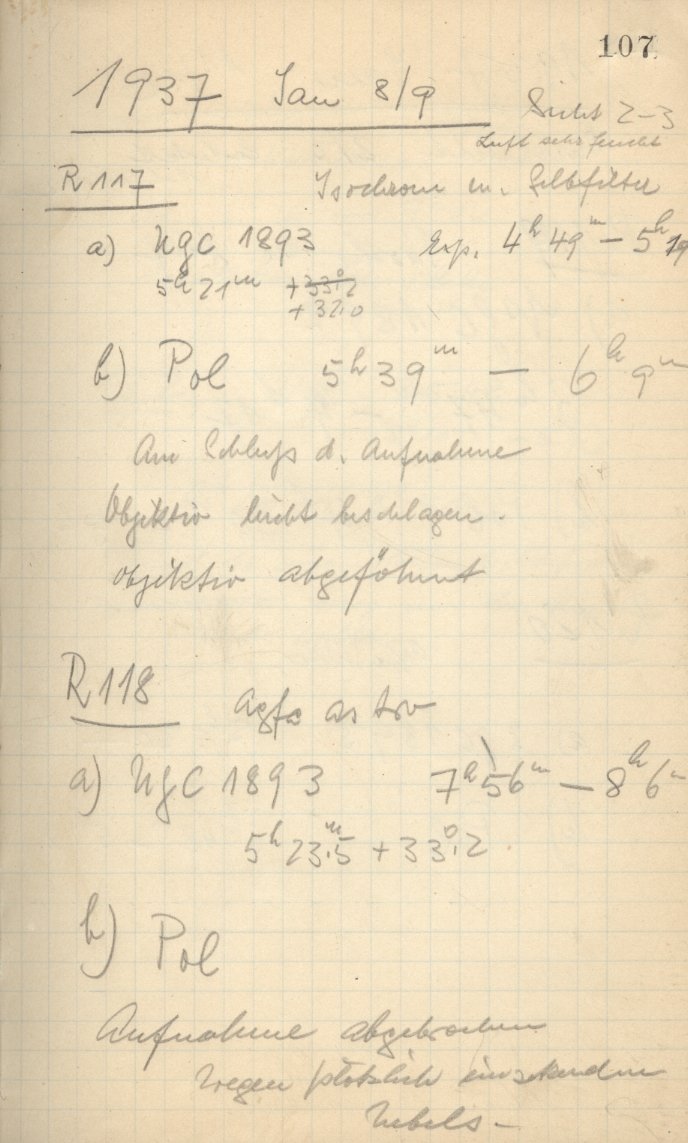 107
1937 Jan 8/9
Sicht 2-3
Luft sehr feucht
R 117
Isochrom m. Gelbfilter
a) NGC 1893 Exp. 4h 49m – 5h 19
5h 21m +33°.2
+32.0
b) Pol 5h 39m – 6h 9m
Am Schluß d. Aufnahme
Objektiv leicht beschlagen.
Objektiv abgeföhnt
R 118
Agfa Astro
a) NGC 1893 7h 56m – 8h 6m
5h 23m.5 +33°.2
b) Pol
Aufnahme abgebrochen
wegen plötzlich einsetzenden
Nebels –